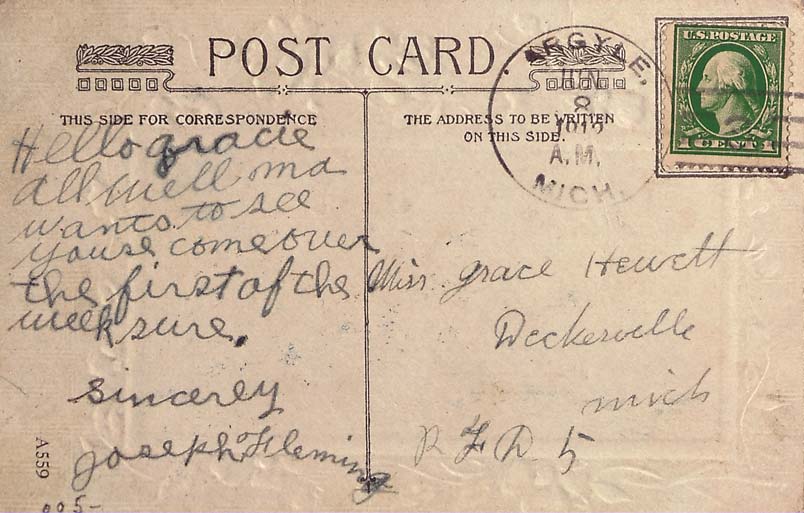 POST CARD.
THIS SIDE FOR CORRESPONDENCE
THE ADDRESS TO BE WRITTEN
ON THIS SIDE.
ARGYLE,
JUN
8
A.M.
MICH.
U.S. POSTAGE
1 CENT 1
Hello gracie
all well ma
wants to see
youse come over
the first of the
week sure.
Sincerey
Joseph Fleming
Miss. Grace Hewett
Deckerville
Mich
R F D 5
A559
005-